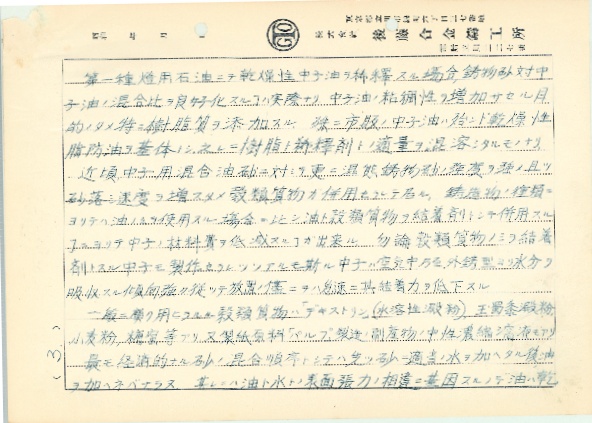 株式会社 後藤合金鋳工所
第一種燈用石油ニテ乾燥性中子油ヲ稀釋スル場合鋳物砂対中
子油ノ混合比ヲ良好化スルヿ実際ナリ 中子油ノ粘稠性ヲ増加サセル目
的ノタメ特ニ樹脂質ヲ添加スル 市販ノ中子油ハ殆ンド乾燥性
脂肪油ヲ基体トシ之レニ樹脂ト稀釋剤トノ適量ヲ混溶シタルモノナリ
近頃中子用混合油砂ニ対シテ更ニ混熊鋳物砂ノ強度ヲ強メ且ツ
砂落シ速度ヲ増スタメ穀類質物ガ併用セラレテ居ル 鋳造物ノ種類ニ
ヨリテハ油ノミヲ使用スル場合ニ比シ油ト穀類質物ヲ結着剤トシテ併用スル
ヿニヨリテ中子ノ材料費ヲ低減スルヿガ出来ル 勿論穀類質物ノミヲ結着
剤トスル中子モ製作セラレツツアルモ斯ル中子ハ空気中乃至外鋳型ヨリ水分ヲ
吸収スル傾向強ク従ツテ放置ノ儘ニテハ急速ニ其結着力ヲ低下スル
一般ニ廣ク用ヒラルル穀類質物ハ「デキストリン」(水溶性澱粉) 玉蜀黍澱粉
小麦粉 糖蜜等アリ又製紙原料「パルプ」製造ノ副産物ノ中性濃縮溶液モアリ
最モ経済的ナル砂ノ混合順序トシテハ先ヅ砂ニ適当ノ水ヲ加ヘタル後油
ヲ加ヘネバナラヌ 其レハ油ト水トノ表面張力ノ相違ニ基因スルノデ油ハ乾
(3)